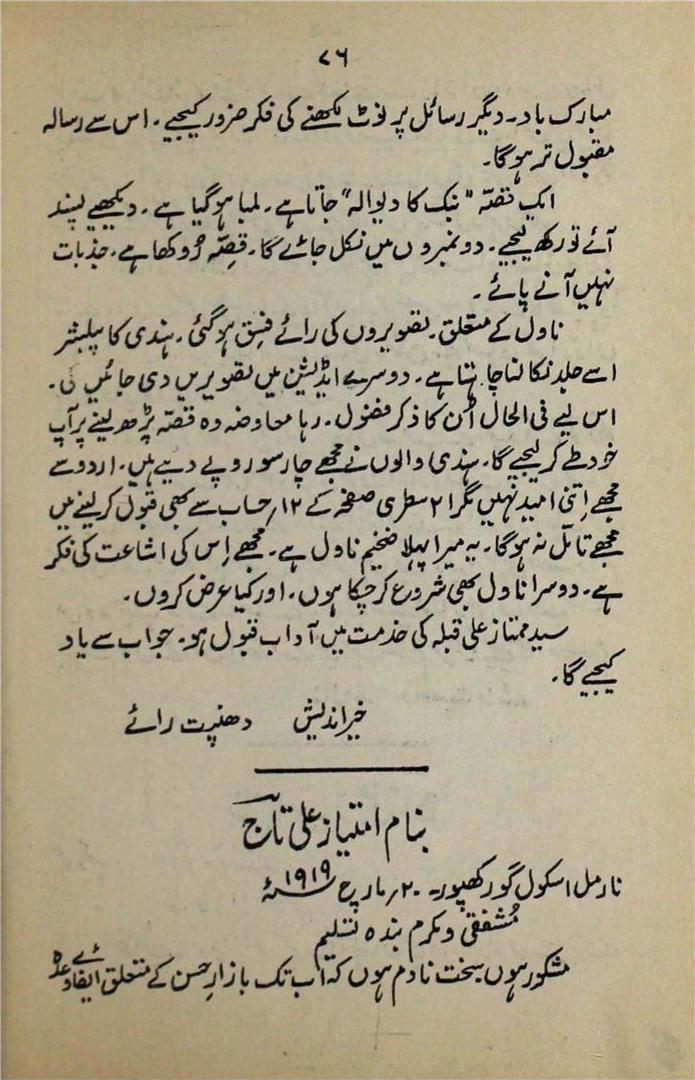 ۷۶
مبارک باد۔ دیگر رسائل پر نوٹ لکھنے کی فکر ضرور کیجیے۔ اس سے رسالہ
مقبول تر ہوگا۔
ایک قصّہ "بنک کا دیوالہ" جاتا ہے۔ لمبا ہوگیا ہے۔ دیکھیے پسند
آئے تو رکھ لیجیے۔ دو نمبروں میں نکل جائے گا۔ قِصّہ رُوکھا ہے۔ جذبات
نہیں آنے پائے۔
ناول کے متعلق۔ تصویروں کی رائے فسق ہوگئی۔ ہندی کا پبلشر
اسے جلد نکالنا چاہتا ہے۔ دوسرے ایڈیشن میں تصویریں دی جائیں گی۔
اس لیے فی الحال اُن کا ذکر فضول۔ رہا معاوضہ وہ قصّہ پڑھ لینے پر آپ
خود طے کر لیجیے گا۔ ہندی والوں نے مجھے چار سو روپے دیے ہیں۔ اردو سے
مجھے اِتنی امید نہیں مگر ۲۱ سطری صفحہ کے ۱۲؍ حساب سے بھی قبول کر لینے میں
مجھے تامّل نہ ہوگا۔ یہ میرا پہلا ضخیم ناول ہے۔ مجھے اِس کی اشاعت کی فکر
ہے۔ دوسرا ناول بھی شروع کر چکا ہوں۔ اور کیا عرض کروں۔
سید ممتاز علی قبلہ کی خدمت میں آداب قبول ہو۔ جواب سے یاد
کیجیے گا۔
خیر اندیش دھنپت رائے
بنام امتیاز علی تاج
نارمل اسکول گورکھپور۔ ۲۰؍ مارچ ۱۹۱۹ء
مُشفقی و مکرم بندہ تسلیم
مشکور ہوں سخت نادم ہوں کہ اب تک بازارِ حسن کے متعلق ایفائے وعدہ